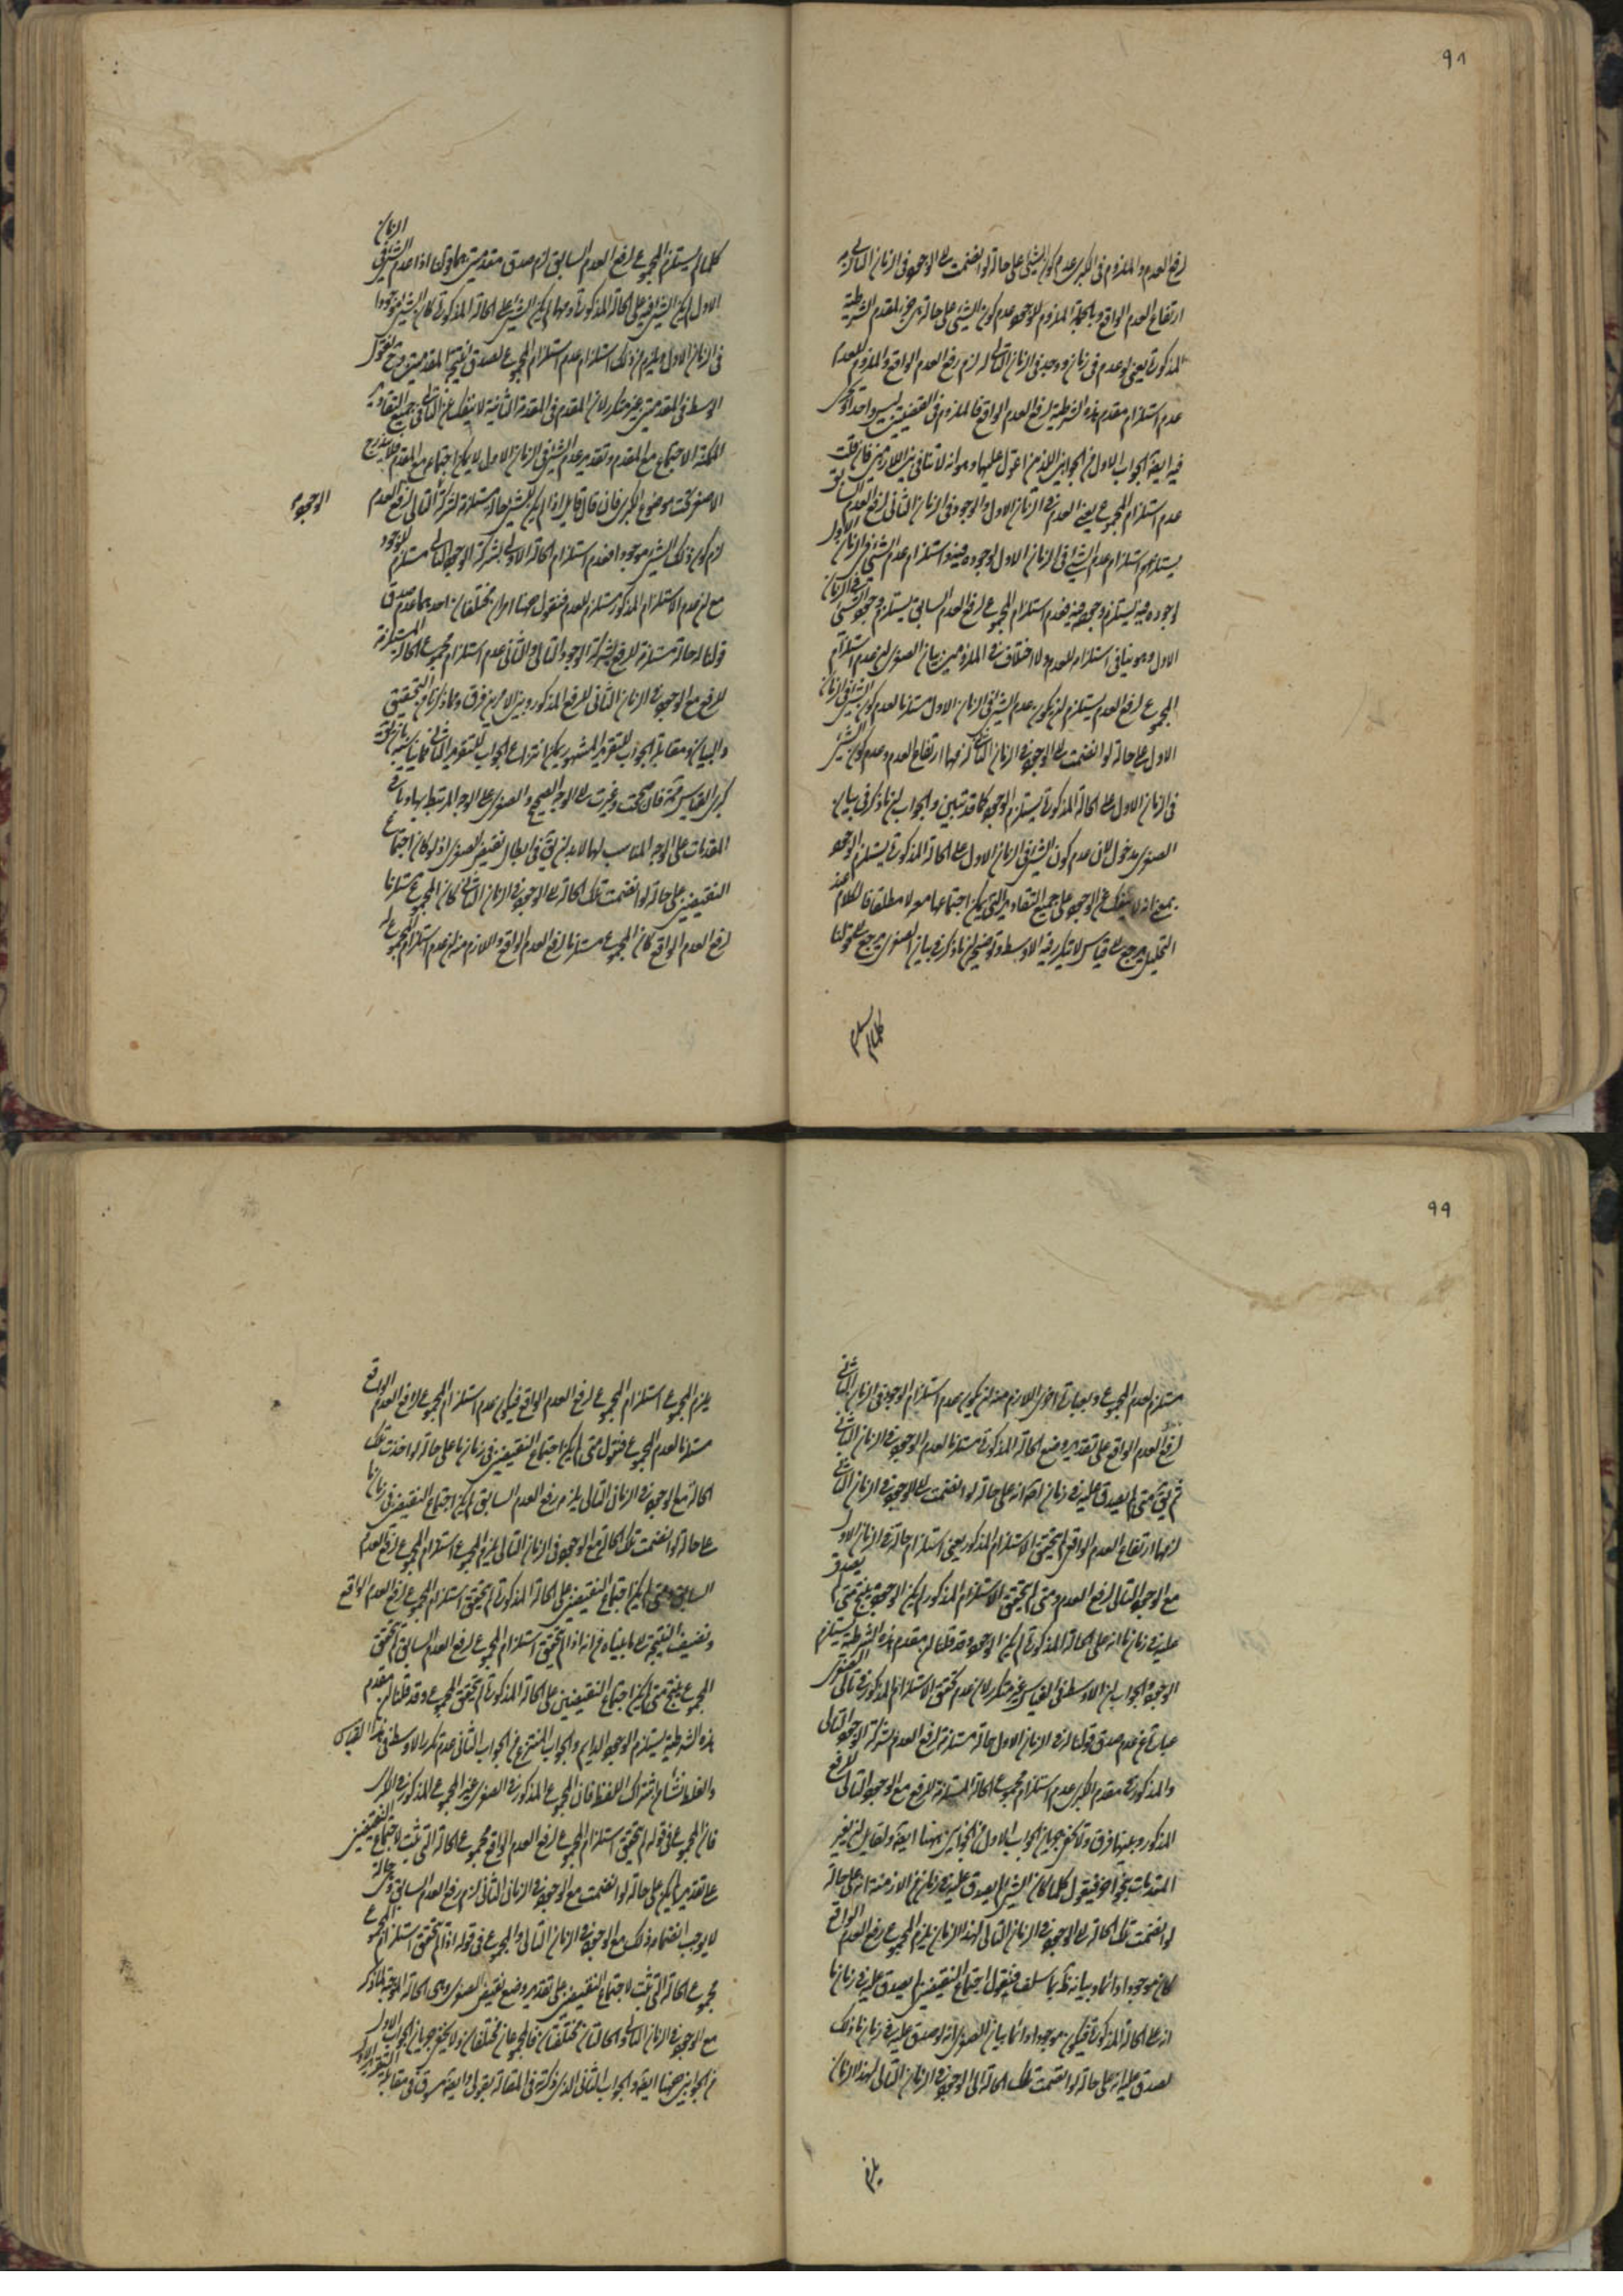 ٩٨
لرفع العدم والملزوم فى الكبرى عدم كون الشئ على حالة لو انضمت الى الوجود فى الزمان التالى لزم
ارتفاع العدم الواقع وبالجملة الملزوم للوجود عدم كون الشئ على حالة هى جزء لمقدم الشرطية
المذكورة يعنى لو عدم فى زمان ووجد فى الزمان التالى لزم رفع العدم الواقع والملزوم للعدم
عدم استلزام مقدم هذه الشرطية لرفع العدم الواقع فالملزوم فى القضيتين ليس واحدا وتجرى
فيه ايضا الجواب الاول من الجوابين اللذين اعول عليهما وهو انه لا تنافى بين اللازمين فان قلت
عدم استلزام المجموع يعنى العدم فى الزمان الاول والوجود فى الزمان الثانى لرفع العدم السابق
يستلزم استلزام عدم الشئ فى الزمان الاول لوجوده فيه واستلزام عدم الشئ فى الزمان الاول
لوجوده فيه يستلزم وجوده فيه فعدم استلزام المجموع لرفع العدم السابق يستلزم وجود الشئ فى الزمان
الاول وهو ينافى استلزامه للعدم ولا اختلاف فى الملزومين بيان الصغرى ان عدم استلزام
المجموع لرفع العدم يستلزم ان يكون عدم الشئ فى الزمان الاول مستلزما لعدم كون الشئ فى الزمان
الاول على حالة لو انضمت الى الوجود فى الزمان التالى لزمها ارتفاع العدم وعدم كون الشئ
فى الزمان الاول على الحالة المذكورة يستلزم الوجود كما قد تبين والجواب ان ما ذكر فى بيان
الصغرى مدخول لان عدم كون الشئ فى الزمان الاول على الحالة المذكورة يستلزم الوجود
بمعنى انه لا ينفك عن الوجود على جميع التقادير التى يمكن اجتماعها معه لا مطلقا فالكلام عند
التحليل يرجع الى قياس لا يتكرر فيه الاوسط وتوضيحه ان ما ذكر فى بيان الصغرى يرجع الى قولنا
كلما لم يستلزم
كلما لم يستلزم المجموع لرفع العدم السابق لزم صدق مقدمتين هما قولنا اذا عدم الشئ فى الزمان
الاول لم يكن الشئ فيه على الحالة المذكورة ومهما لم يكن الشئ على الحالة المذكورة كان الشئ موجودا
فى الزمان الاول ويلزم من ذلك استلزام عدم استلزام المجموع لصدق نتيجة المقدمتين وح نقول
الاوسط فى المقدمتين غير متكرر لان المقدم فى المقدمة الثانية لا ينفك عن التالى فى جميع التقادير
الممكنة الاجتماع مع المقدم وتقدير عدم الشئ فى الزمان الاول لا يمكن اجتماعه مع المقدم فلا يندرج
الاصغر تحت موضوع الكبرى فان قال قائل اذا لم يكن للشئ حالة مستلزمة لشركة التالى لرفع العدم
الوجود
لزم كون ذلك الشئ موجودا فعدم استلزام الحالة الاولى بشركة الوجود التالى مستلزم للوجود
مع ان عدم الاستلزام المذكور مستلزم للعدم فنقول ههنا امران مختلفان احدهما عدم صدق
قولنا له حالة مستلزمة للرفع بشركة الوجود التالى والثانى عدم استلزام مجموع الحالة المستلزمة
للرفع مع الوجود فى الزمان الثانى للرفع المذكور وبين الامرين فرق وما ذكرناه من التحقيق
والبيان فى مقابلة الجواب للتقرير المشهور يمكن انتزاع الجواب للتقرير الثانى
المقدمات على الوجه المناسب لها لابد ان يق فى ابطال نقيض الصغرى اذ لو كان اجتماع
النقيضين على حالة لو انضمت تلك الحالة الى الوجود فى الزمان التالى كان المجموع مستلزما
لرفع العدم الواقع كان المجموع مستلزما لرفع العدم الواقع واللازم منه ان عدم استلزام المجموع له
٩٩
مستلزم لعدم المجموع وبعبارة اخرى اللازم منه ان يكون عدم استلزام الوجود فى الزمان الثانى
لرفع العدم الواقع على تقدير وضع الحالة المذكورة مستلزما لعدم الوجود فى الزمان الثانى
ثم يق متى لم يصدق عليه فى زمان انه على حالة لو انضمت الى الوجود فى الزمان التالى
لزمها ارتفاع العدم الواقع لم يتحقق الاستلزام المذكور يعنى استلزام حالة فى الزمان الاول
مع الوجود التالى لرفع العدم ومتى لم يتحقق الاستلزام المذكور لم يكن الوجود ينتج متى لم يصدق
عليه فى زمان ما انه على الحالة المذكورة لم يكن الوجود وقد قلنا ان مقدم هذه الشرطية يستلزم
الوجود والجواب ان الاوسط فى القياس غير متكرر لان عدم تحقق الاستلزام المذكور فى تالى الصغرى
عبارة عن عدم صدق قولنا له فى الزمان الاول حالة مستلزمة لرفع العدم بشركة الوجود التالى
والمذكور فى مقدم الكبرى عدم استلزام مجموع الحالة المستلزمة للرفع مع الوجود التالى للرفع
المذكور وبينهما فرق ولا يخفى جريان الجواب الاول من الجوابين ههنا ايضا ولقائل ان يغير
المقدمات بنحو آخر فيقول كلما كان الشئ لم يصدق عليه فى زمان من الازمنة انه على حالة
لو انضمت تلك الحالة الى الوجود فى الزمان التالى لهذا الزمان يلزم المجموع رفع العدم الواقع
كان موجودا دائما وبيانه ظ بما سلف فنقول اجتماع النقيضين لم يصدق عليه فى زمان ما
انه على الحالة المذكورة فيكون موجودا دائما بيان الصغرى انه لو صدق عليه فى زمان ما ذلك
لصدق عليه انه على حالة لو انضمت تلك الحالة الى الوجود فى الزمان التالى لهذا الزمان
يلزم
يلزم المجموع استلزام المجموع لرفع العدم الواقع فيكون عدم استلزام المجموع لرفع العدم الواقع
مستلزما لعدم المجموع فنقول متى لم يكن اجتماع النقيضين فى زمان ما على حالة لو اخذت تلك
الحالة مع الوجود فى الزمان التالى يلزم رفع العدم السابق لم يكن اجتماع النقيضين فى زمان ما
على حالة لو انضمت تلك الحالة مع الوجود فى الزمان التالى يلزم المجموع استلزام المجموع لرفع العدم
السابق ومتى لم يكن اجتماع النقيضين على الحالة المذكورة لم يتحقق استلزام المجموع لرفع العدم الواقع
ونضيف النتيجة الى ما بيناه من انه اذا لم يتحقق استلزام المجموع لرفع العدم السابق لم يتحقق
المجموع ينتج متى لم يكن اجتماع النقيضين على الحالة المذكورة لم يتحقق المجموع وقد قلنا ان مقدم
هذه الشرطية يستلزم الوجود الدايم والجواب المنتزع من الجواب الثانى عدم تكرر الاوسط فى هذا القياس
والغلط نشأ من اشتراك اللفظ فان المجموع المذكور فى الصغرى غير المجموع المذكور فى الكبرى
فان المجموع فى قوله لم يتحقق استلزام المجموع لرفع العدم الواقع مجموع الحالة التى تثبت لاجتماع النقيضين
على تقدير لم يكن على حالة لو انضمت مع الوجود فى الزمان التالى لزم رفع العدم السابق وهى حالة
لا يوجب انضمام ذلك مع الوجود فى الزمان التالى والمجموع فى قوله اذا لم يتحقق استلزام المجموع
مجموع الحالة التى تثبت لاجتماع النقيضين على تقدير وضع نقيض الصغرى وهى الحالة الموجبة لما ذكر
مع الوجود فى الزمان التالى والحالتان مختلفتان فالمجموعان مختلفان ولا يخفى جريان الجواب الاول
من الجوابين ههنا ايضا والجواب الثانى الذى ذكرته فى المقالة بقولى وايضا